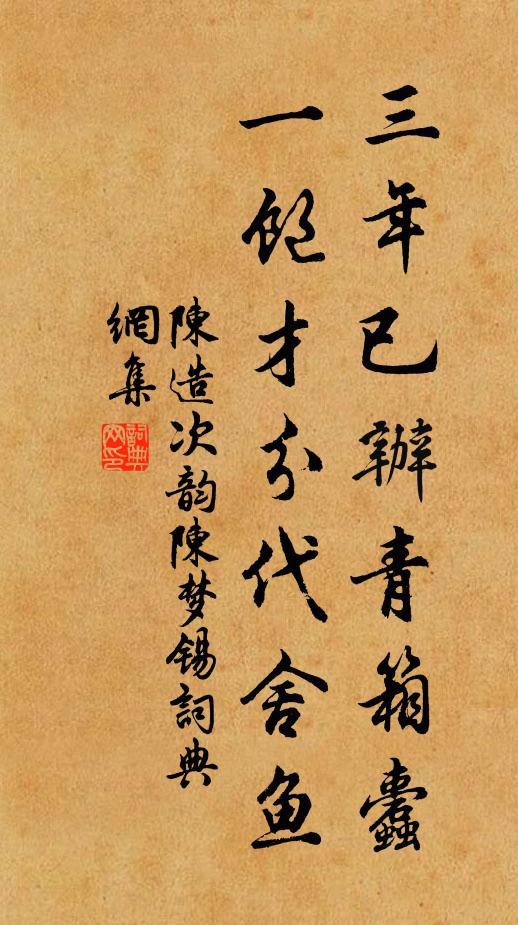 三年已辦青箱蠹
一飽才分代舍鱼
陳造次韵陳梦锡詞典
網集
詞典網印